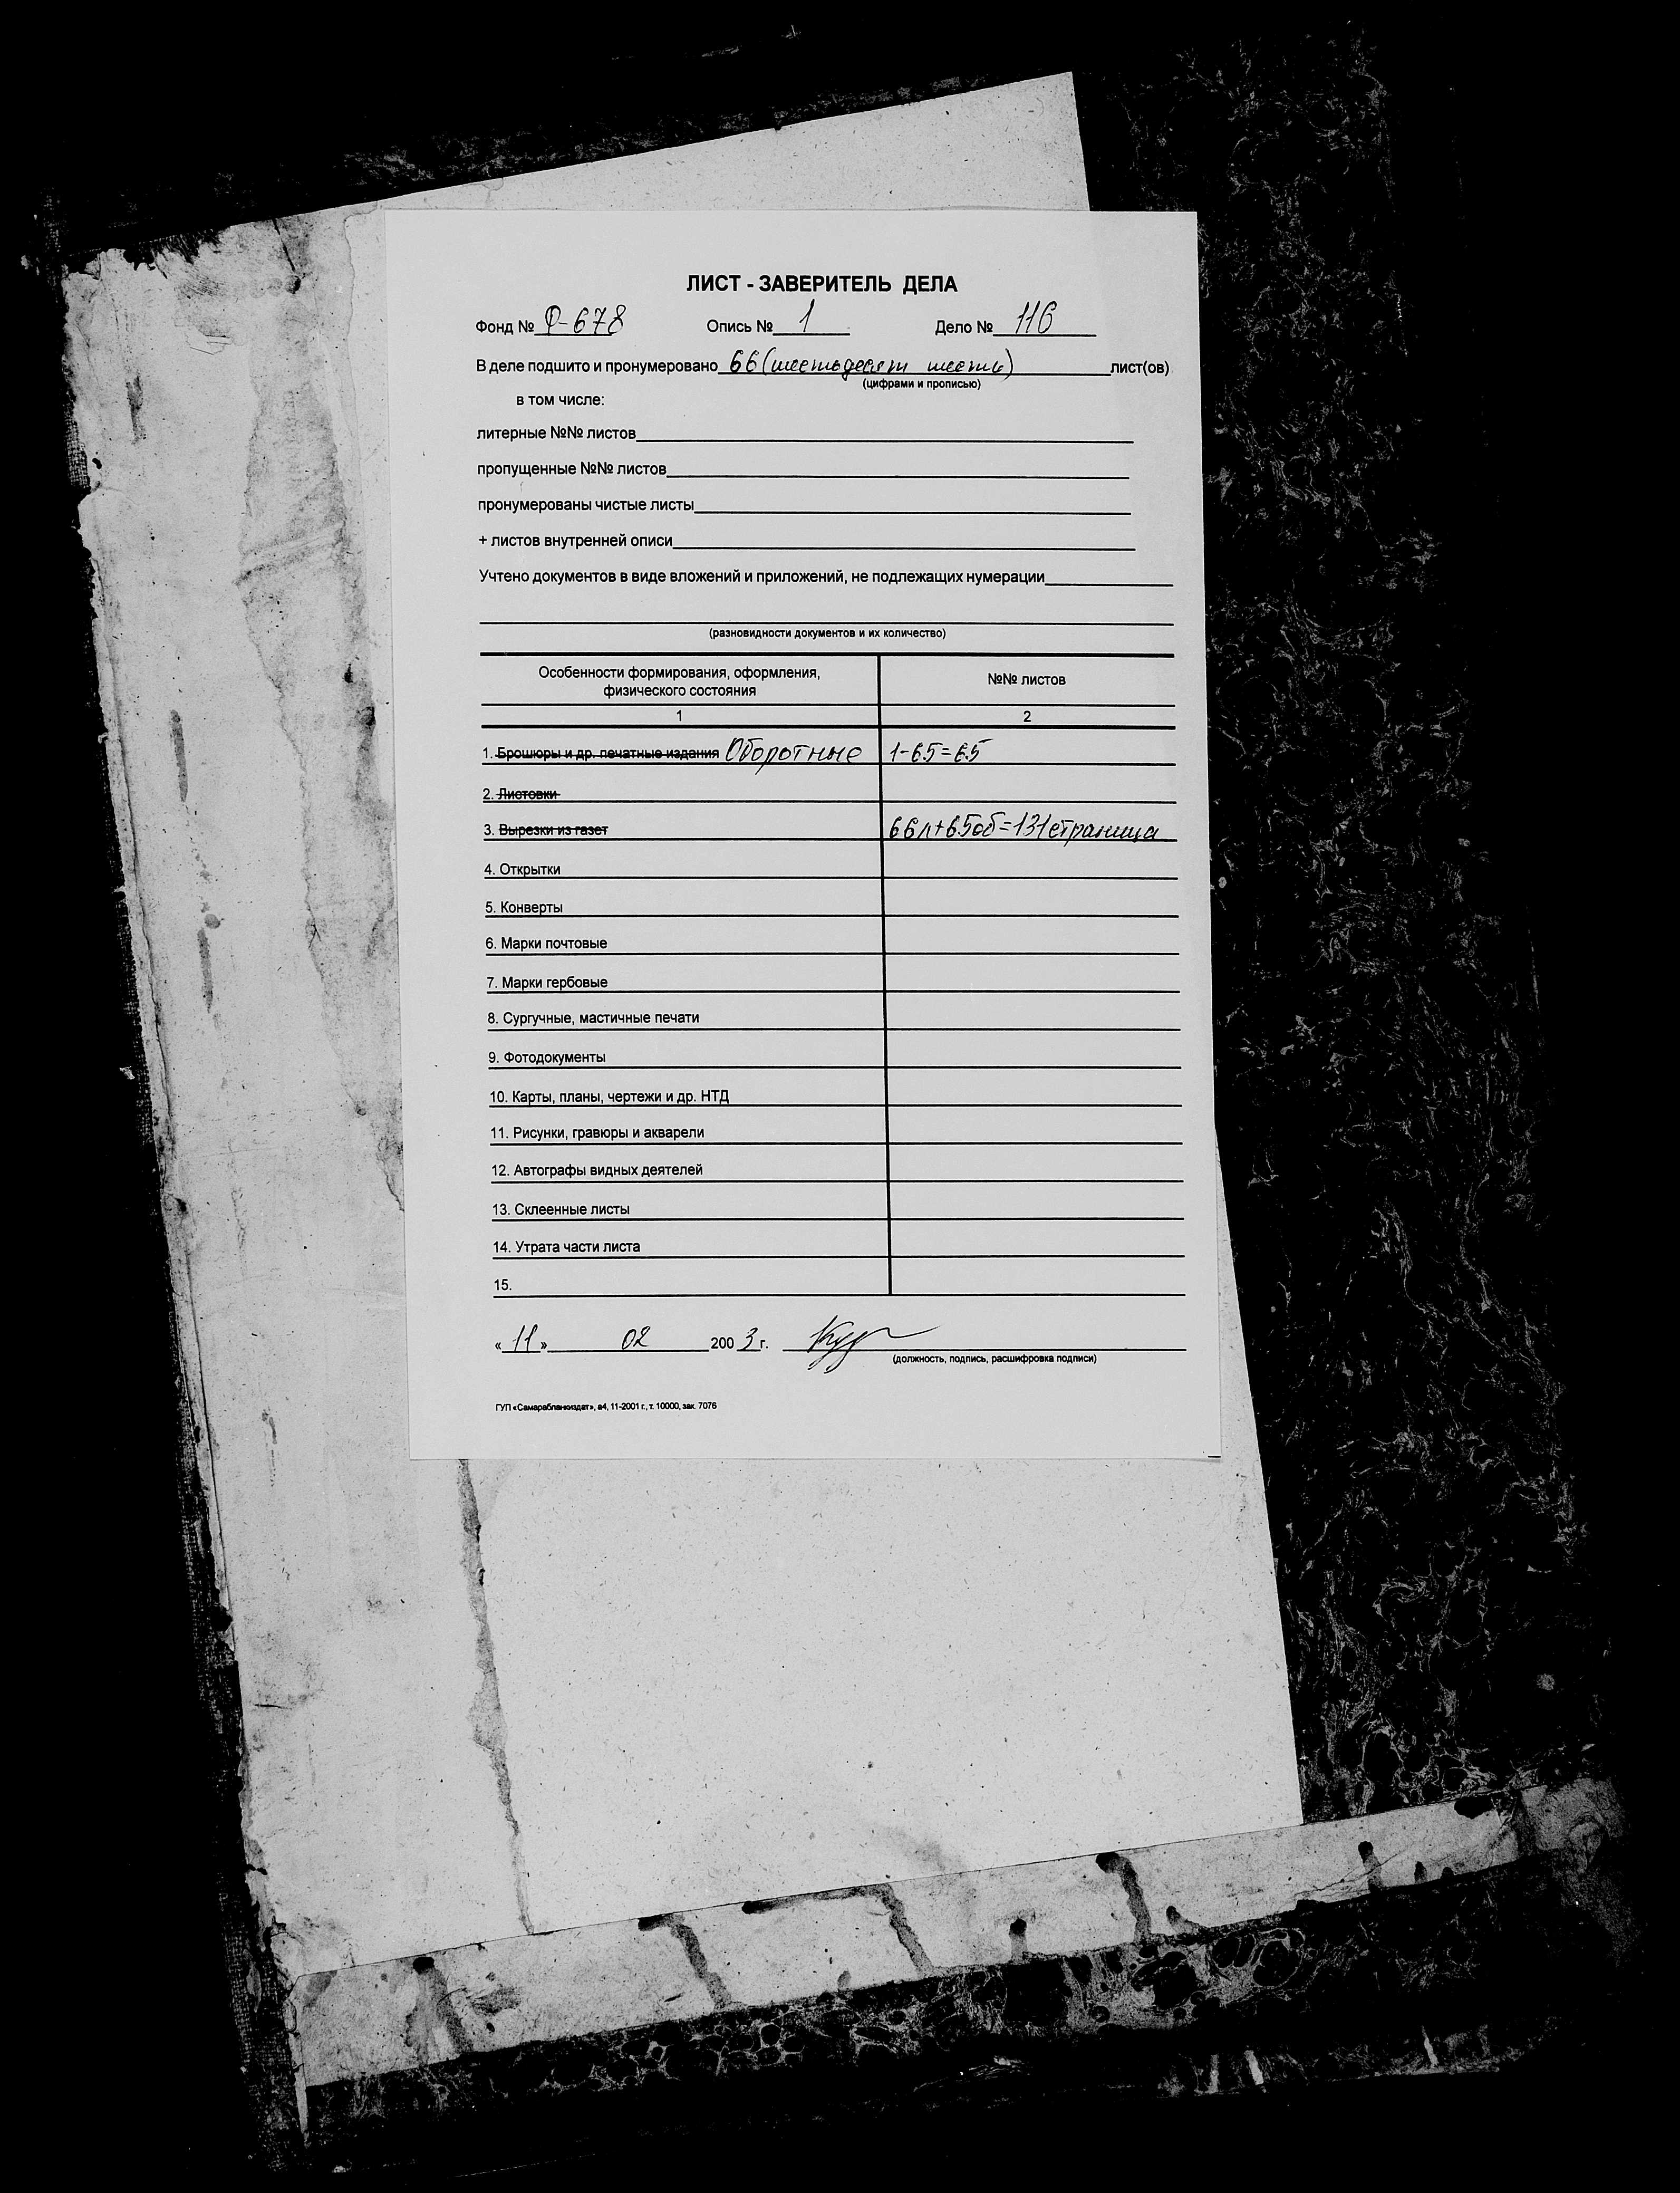 ЛИСТ - ЗАВЕРИТЕЛЬ ДЕЛА
Фонд № Р-678 Опись № 1 Дело № 116
В деле подшито и пронумеровано 66 (шестьдесят шесть) лист(ов)
(цифрами и прописью)
в том числе:
литерные №№ листов
пропущенные №№ листов
пронумерованы чистые листы
+ листов внутренней описи
Учтено документов в виде вложений и приложений, не подлежащих нумерации
(разновидности документов и их количество)
Особенности формирования, оформления, физического состояния №№ листов
1 2
1. Брошюры и др. печатные издания Оборотные 1-65=65
2. Листовки
3. Вырезки из газет 66л+65об=131страница
4. Открытки
5. Конверты
6. Марки почтовые
7. Марки гербовые
8. Сургучные, мастичные печати
9. Фотодокументы
10. Карты, планы, чертежи и др. НТД
11. Рисунки, гравюры и акварели
12. Автографы видных деятелей
13. Склеенные листы
14. Утрата части листа
15.
« 11 » 02 200 3 г.
(должность, подпись, расшифровка подписи)
ГУП «Самарабланкиздат», а4, 11-2001 г., т. 10000, зак. 7076